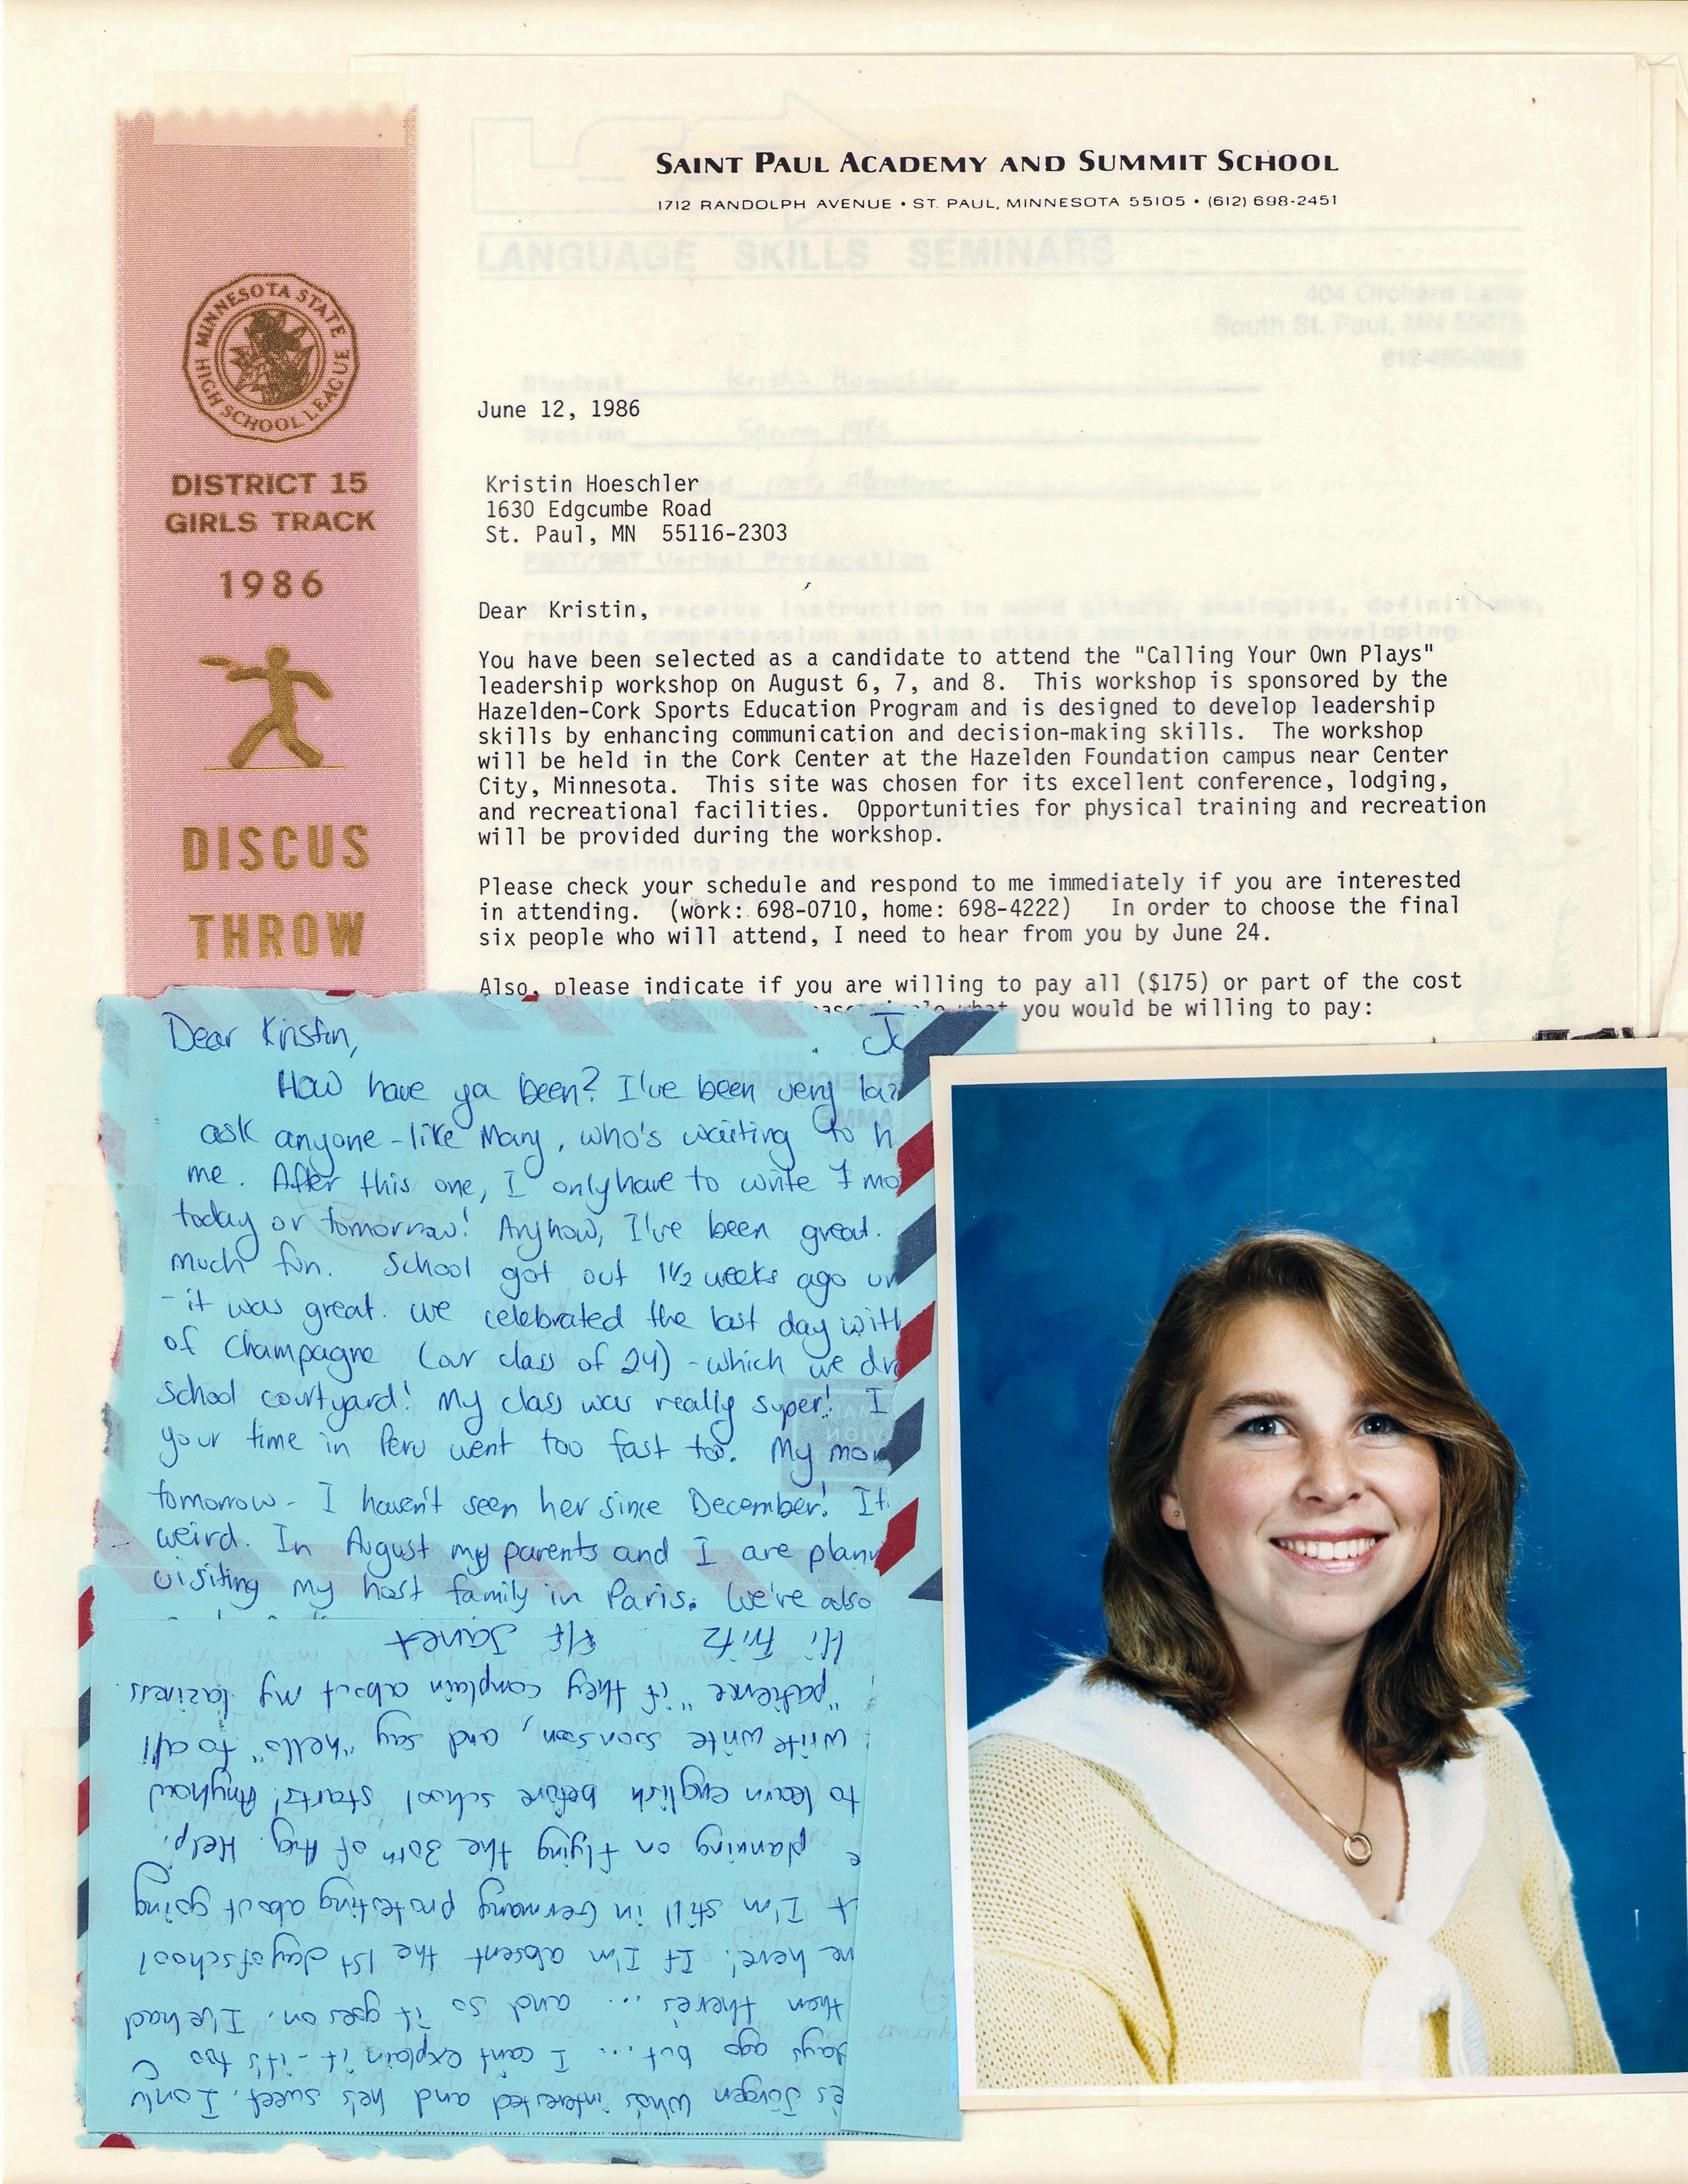 SAINT PAUL ACADEMY AND SUMMIT SCHOOL
1712 RANDOLPH AVENUE • ST. PAUL, MINNESOTA 55105 • (612) 698-2451
LANGUAGE SKILLS SEMINARS
404 Orchard Lane
South St. Paul, MN 55075
Student Kristin Hoeschler
Session Spring 1986
PSAT/SAT Verbal Preparation
receive instruction in word attack, analogies, definitions,
reading comprehension and also obtain assistance in developing
beginning prefixes
MINNESOTA STATE
HIGH SCHOOL LEAGUE
DISTRICT 15
GIRLS TRACK
1986
DISCUS
THROW
June 12, 1986
Kristin Hoeschler
1630 Edgcumbe Road
St. Paul, MN 55116-2303
Dear Kristin,
You have been selected as a candidate to attend the "Calling Your Own Plays"
leadership workshop on August 6, 7, and 8. This workshop is sponsored by the
Hazelden-Cork Sports Education Program and is designed to develop leadership
skills by enhancing communication and decision-making skills. The workshop
will be held in the Cork Center at the Hazelden Foundation campus near Center
City, Minnesota. This site was chosen for its excellent conference, lodging,
and recreational facilities. Opportunities for physical training and recreation
will be provided during the workshop.
Please check your schedule and respond to me immediately if you are interested
in attending. (work: 698-0710, home: 698-4222) In order to choose the final
six people who will attend, I need to hear from you by June 24.
Also, please indicate if you are willing to pay all ($175) or part of the cost
what you would be willing to pay:
Dear Kristin,
How have ya been? I've been very
ask anyone - like Mary, who's waiting to h
me. After this one, I only have to write 7 mo
today or tomorrow! Anyhow, I've been great.
much fun. School got out 1 1/2 weeks ago
- it was great. We celebrated the last day with
of Champagne (our class of 24) - which we
school courtyard! My class was really super! I
your time in Peru went too fast too. My mom
tomorrow - I haven't seen her since December! It
weird. In August my parents and I are plann
visiting my host family in Paris. We're also
es Jürgen who's interested and he's sweet. I only
days ago but... I can't explain it - it's too
then there's ... and so it goes on. I've had
me here! If I'm absent the 1st day of school
I'm still in Germany protesting about going
planning on flying the 30th of Aug. Help!
to learn english before school starts! Anyhow
write write soonson, and say "hello" to all
"patience" if they complain about my laziness.
Hi Fritz Janet